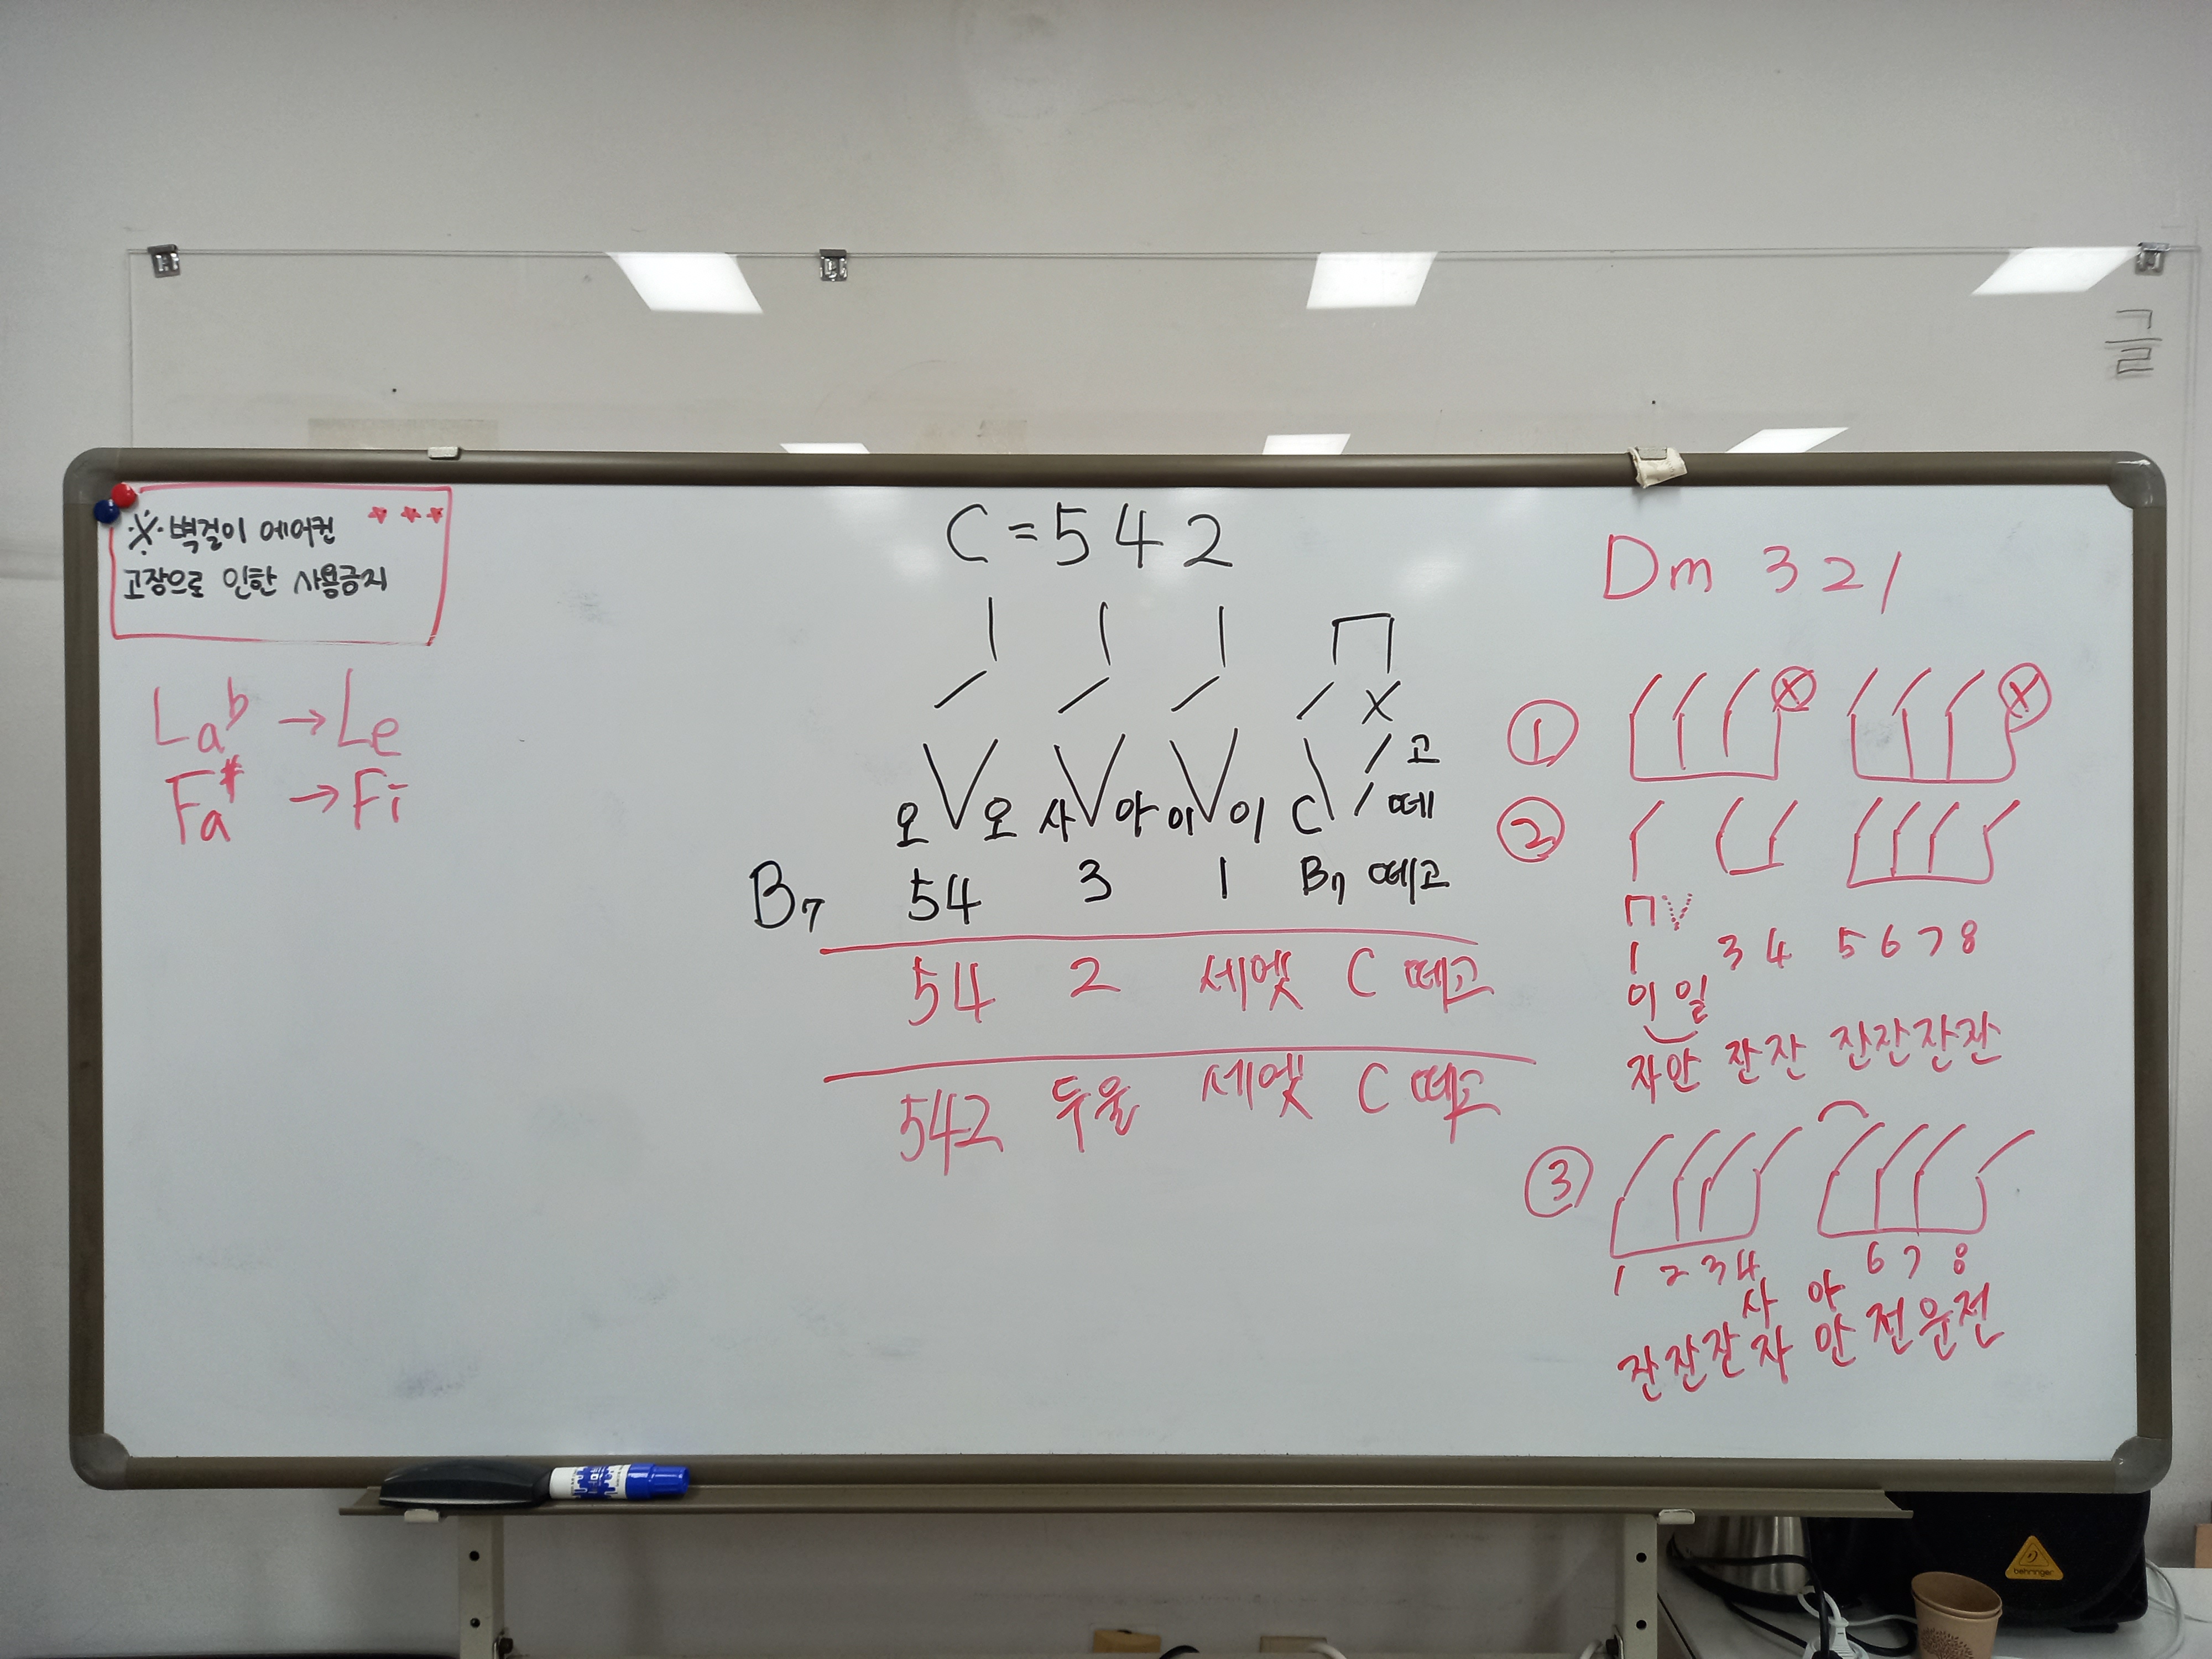 ※ 벽걸이 에어컨
고장으로 인한 사용금지
La♭ → Le
Fa# → Fi
C = 5 4 2
고
오 오 사 아 이 이 C 떼
B7 54 3 1 B7 떼고
54 2 세엣 C 떼고
542 두울 세엣 C 떼고
Dm 3 2 1
①
②
1 3 4 5 6 7 8
이 일
자안 잔잔 잔잔잔잔
③
1 2 3 4 6 7 8
사 아
잔잔잔자 안 전운전
글
behringer